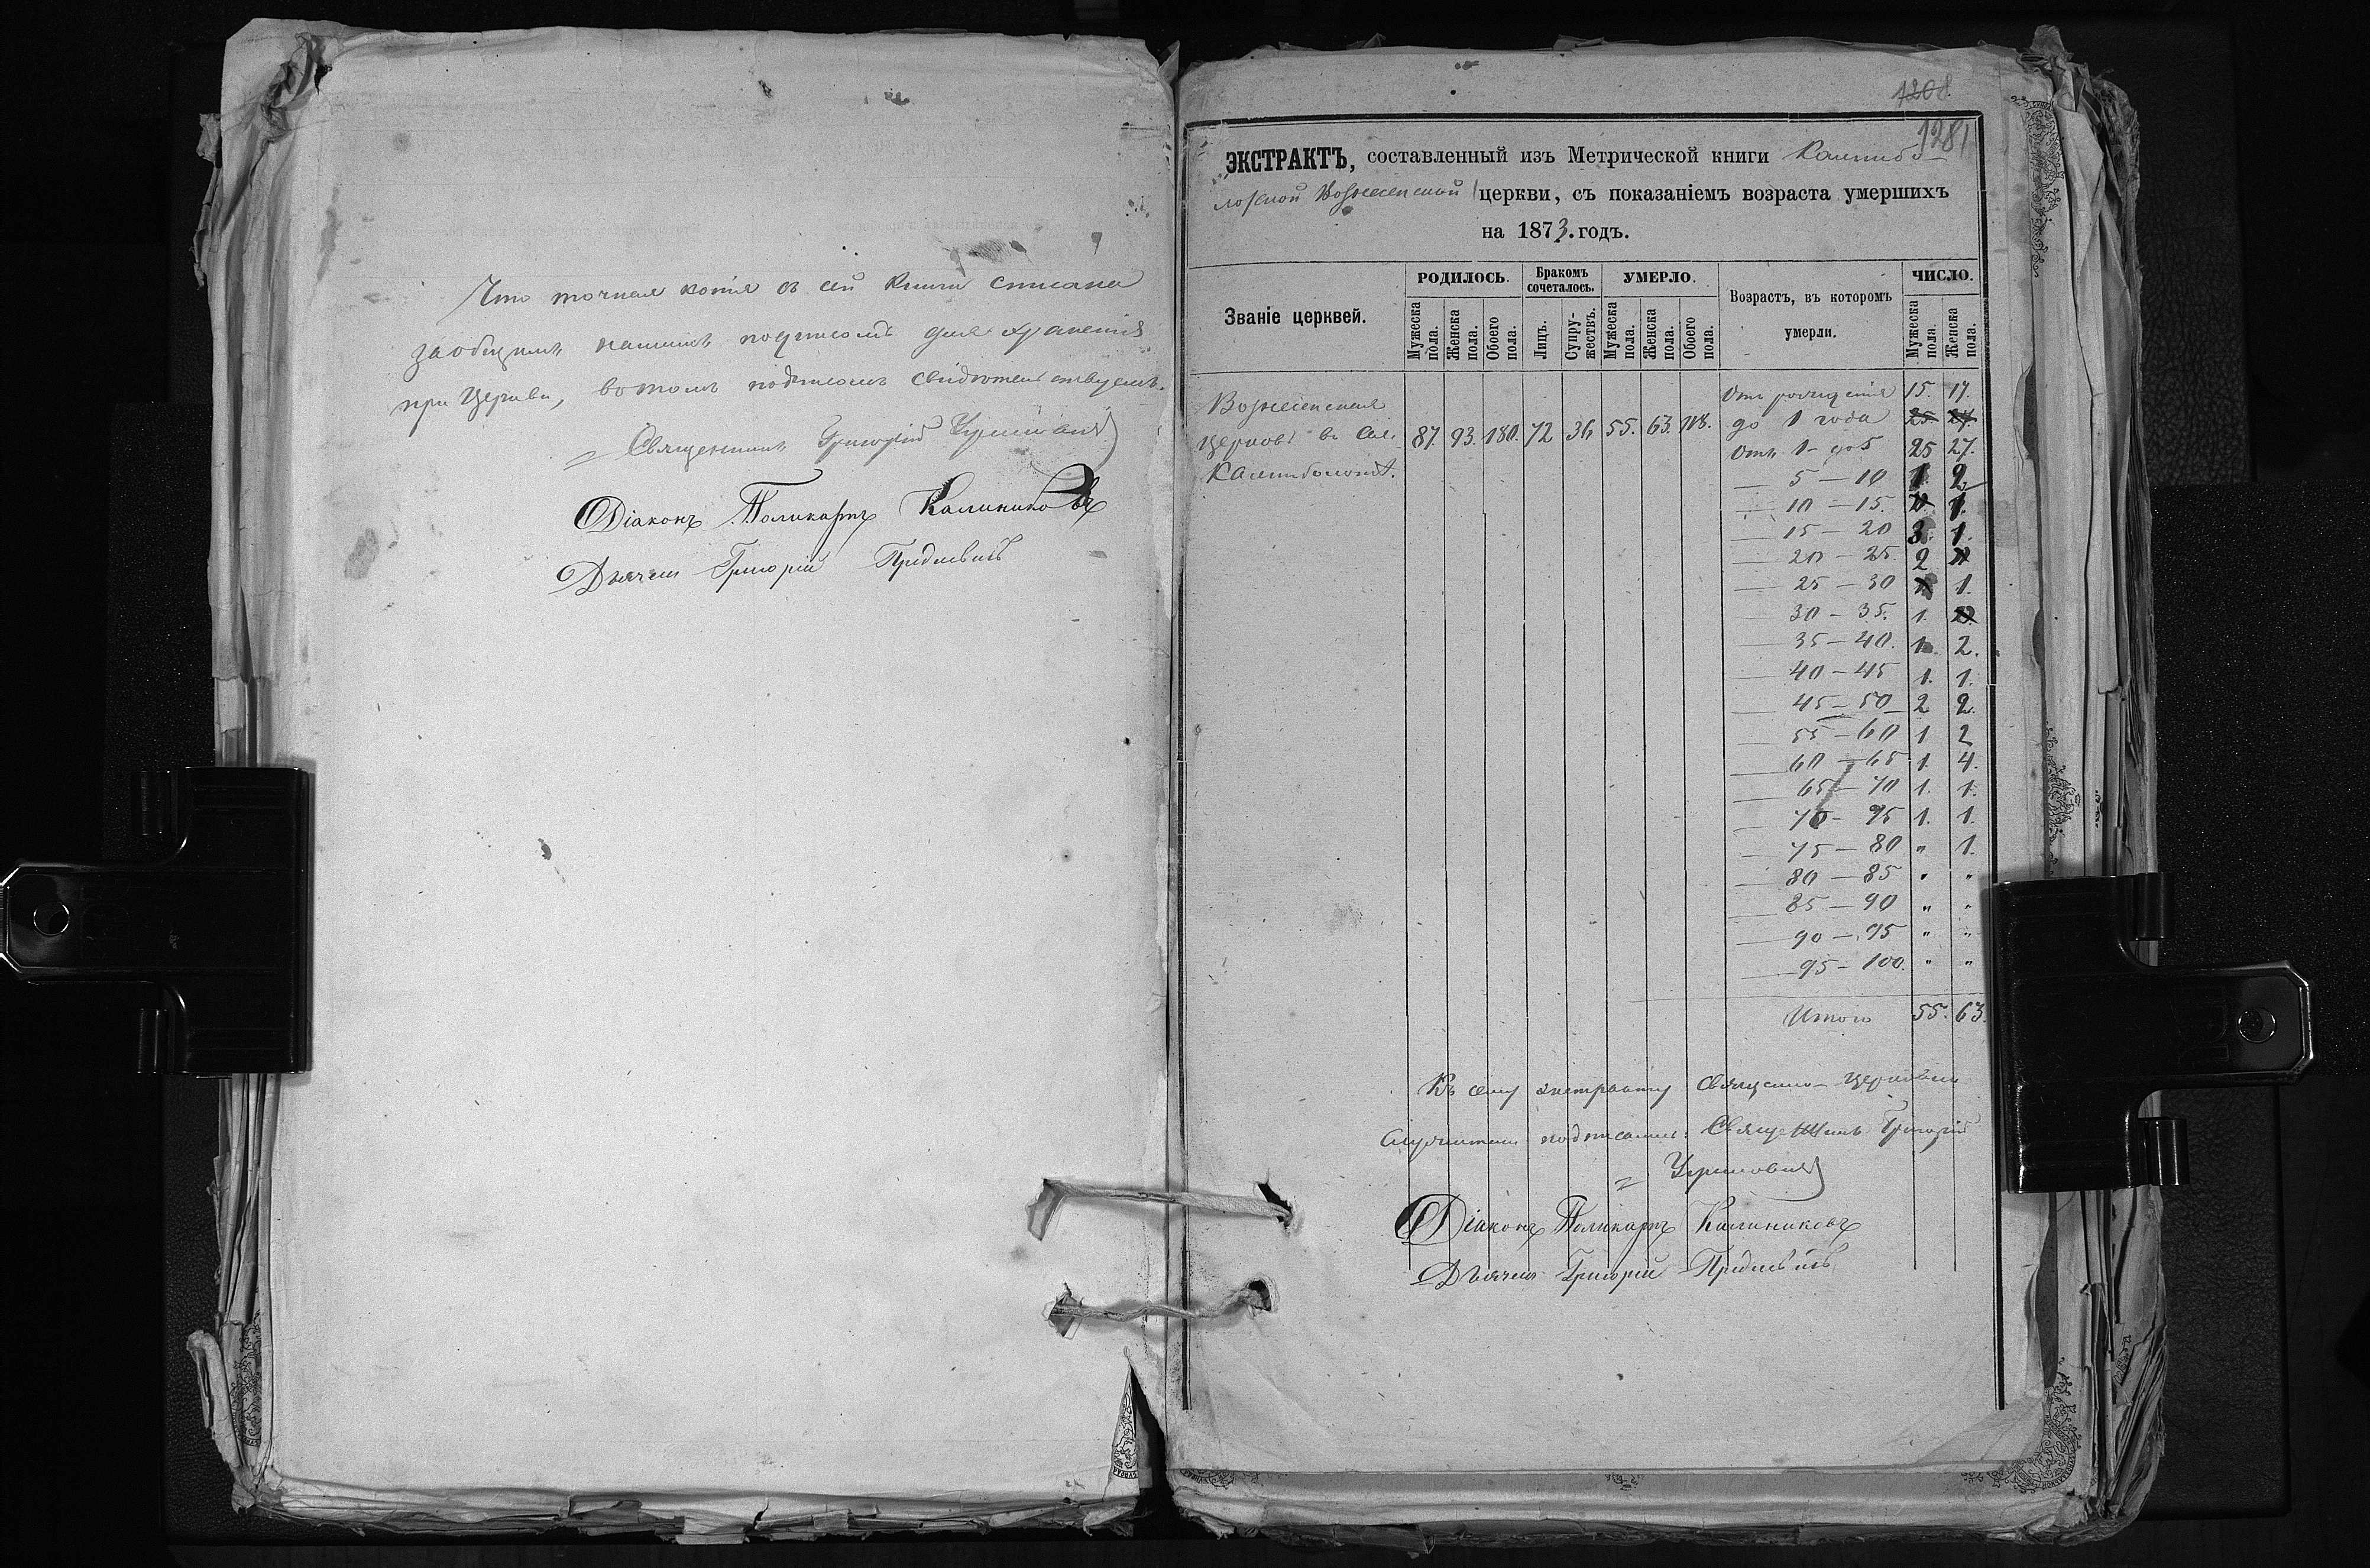 Что точная копія съ сей книги списана
заобщимъ нашимъ подписомъ для храненія
при Церкви, вотомъ подписомъ свидѣтельствуемъ.
Священникъ Григорій
Діаконъ Поликарпъ Калиниковъ
Дьячекъ Григорій
1208
1281
ЭКСТРАКТЪ, составленный изъ Метрической книги Калнибо-
лоцкой Вознесенской церкви, съ показаніемъ возраста умершихъ
на 1873. годъ.
Званіе церквей.
РОДИЛОСЬ. Бракомъ сочеталось. УМЕРЛО. Возрастъ, въ которомъ умерли. ЧИСЛО.
Мужеска пола. Женска пола. Обоего пола. Лицъ. Супружествъ. Мужеска пола. Женска пола. Обоего пола. Мужеска пола. Женска пола.
Вознесенская
Церковь въ Сел.
Калниболотѣ.
87. 93. 180. 72 36 55. 63. 118.
Отъ рожденія 15. 17.
до 1 года 25 27.
Отъ 1 - до 5 25 27.
— 5 — 10 1. 2
— 10 — 15. 1.
— 15 — 20 3. 1.
— 20 — 25. 2
— 25 — 30 1.
— 30 — 35. 1.
— 35 — 40. 1. 2.
— 40 — 45 1. 1.
— 45 — 50 2 2.
— 55 — 60 1 2
— 60 — 65 1. 4.
— 65 — 70 1. 1.
— 70 — 75 1. 1.
— 75 — 80 " 1.
— 80 — 85 " "
— 85 — 90 " "
— 90 — 95 " "
— 95 — 100. " "
Итого 55. 63.
Къ сему экстракту Священно-Церковно
служители подписались: Священникъ Григорій
Діаконъ Поликарпъ Калиниковъ
Дьячекъ Григорій